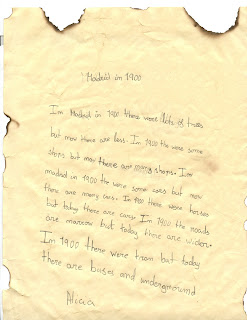 Madrid in 1900
Im Madrid in 1900 there were lots of trees
but now there are less. In 1900 the were some
shops but now there are many shops. Im
madrid in 1900 the were some uses but now
there are many cars. In 1900 there were horses
but today there are cars. In 1900 the roads
are marrow but today there are wider.
Im 1900 there were tram but today
there are buses and underground
Alicia